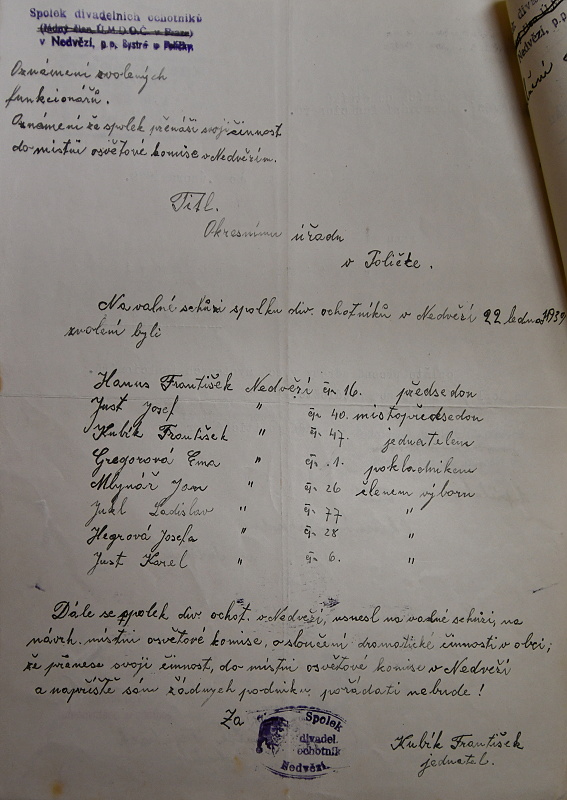 Spolek divadelních ochotníků
(řádný člen Ú.M.D.O.Č. v Praze)
v Nedvězí, p.p. Bystré u Poličky.
Oznámení zvolených
funkcionářů.
Oznámení že spolek přenáší svoji činnost
do místní osvětové komise v Nedvězím.
Titl.
Okresnímu úřadu
v Poličce.
Na valné schůzi spolku div. ochotníků v Nedvězí 22 ledna 1939
zvoleni byli
Hanus František Nedvězí čp. 16. předsedou
Just Josef " čp. 40. místopředsedou
Kubík František " čp. 47. jednatelem
Gregorová Ema " čp. 1. pokladníkem
Mlynář Jan " čp. 26 členem výboru
Jukl Ladislav " čp. 77 "
Hegrová Josefa " čp. 28 "
Just Karel " čp. 6. "
Dále se spolek div. ochot. v Nedvězí, usnesl na valné schůzi, na
návrh místní osvětové komise, o sloučení dramatické činnosti v obci;
že přenese svoji činnost, do místní osvětové komise v Nedvězí
a napříště sám žádných podniků pořádati nebude!
Za
Spolek
divadel.
ochotník
Nedvězí.
Kubík František
jednatel.